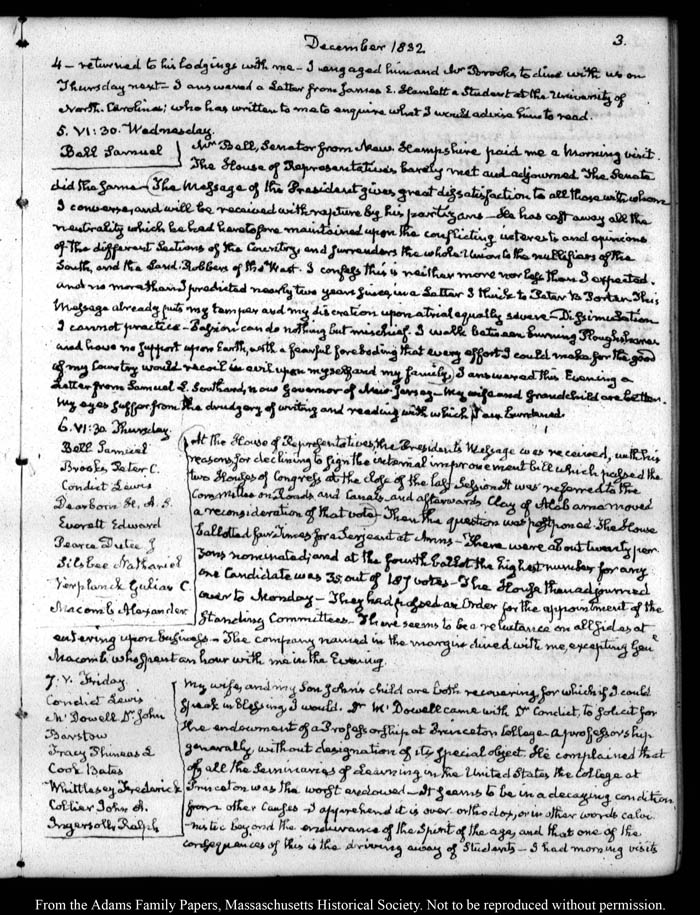 December 1832
3.
4 – returned to his lodgings with me – I engaged him and Mr Brooks to dine with us on
Thursday next – I answered a Letter from James E. Hamlett a Student at the University of
North Carolina; who has written to me to enquire what I would advise him to read.
5. VI:30. Wednesday.
Bell Samuel
Mr Bell, Senator from New Hampshire paid me a Morning visit.
The House of Representatives barely met and adjourned The Senate
did the same – The Message of the President gives great dissatisfaction to all those with whom
I converse, and will be received with rapture by his partizans – He has cast away all the
neutrality which he had heretofore maintained upon the conflicting interests and opinions
of the different Sections of the Country, and surrenders the whole Union to the nullifiers of the
South, and the Land Robbers of the West. I confess this is neither more nor less than I expected.
and no more than I predicted nearly two years since, in a Letter I think to Peter B. Porter. This
Message already puts my temper and my discretion upon a trial equally severe – Dissimulation
I cannot practice – Passion can do nothing but mischief. I walk between burning Ploughshares
and have no support upon Earth, with a fearful foreboding that every effort I could make for the good
of my Country would recoil in evil upon myself and my family. I answered this Evening a
Letter from Samuel L. Southard, now Governor of New-Jersey – My wife and Grandchild are better.
My eyes suffer from the drudgery of writing and reading with which I am burdened
6. VI:30. Thursday.
Bell Samuel
Brooks Peter C.
Condict Lewis
Dearborn H. A. S.
Everett Edward
Pearce Dutee J
Silsbee Nathaniel
Verplanck Gulian C.
Macomb Alexander
At the House of Representatives, the President's Message was received, with his
reasons for declining to sign the internal improvement bill which passed the
two Houses of Congress at the close of the last Session It was referred to the
Committee on Roads and Canals and afterwards Clay of Alabama moved
a reconsideration of that vote – Then the question was postponed. The House
ballotted four Times for a Sergeant at Arms – There were about twenty per-
sons nominated; and at the fourth ballot the highest number for any
one Candidate was 35 out of 187 votes – The House then adjourned
over to Monday – They had passed an Order for the appointment of the
Standing Committees. There seems to be a reluctance on all sides at
entering upon business – The company named in the margin dined with me, excepting Gen
Macomb who spent an hour with me in the Evening.
7. V. Friday
Condict Lewis
McDowell Dr John
Barstow
Tracy Phineas L
Cook Bates
Whittlesey Frederick
Collier John A.
Ingersoll Ralph
My wife, and my Son John's child are both recovering, for which if I could
speak in blessing I would. Dr McDowell came with Dr Condict, to solicit for
the endowment of a Professorship at Princeton College a professorship
generally, without designation of its special object. He complained that
of all the Seminaries of Learning in the United States the College at
Princeton was the worst endowed – It seems to be in a decaying condition
from other causes – I apprehend it is over-orthodox, or in other words calvi-
nistic beyond the endurance of the Spirit of the age, and that one of the
consequences of this is the driving away of Students – I had morning visits
From the Adams Family Papers, Massachusetts Historical Society. Not to be reproduced without permission.